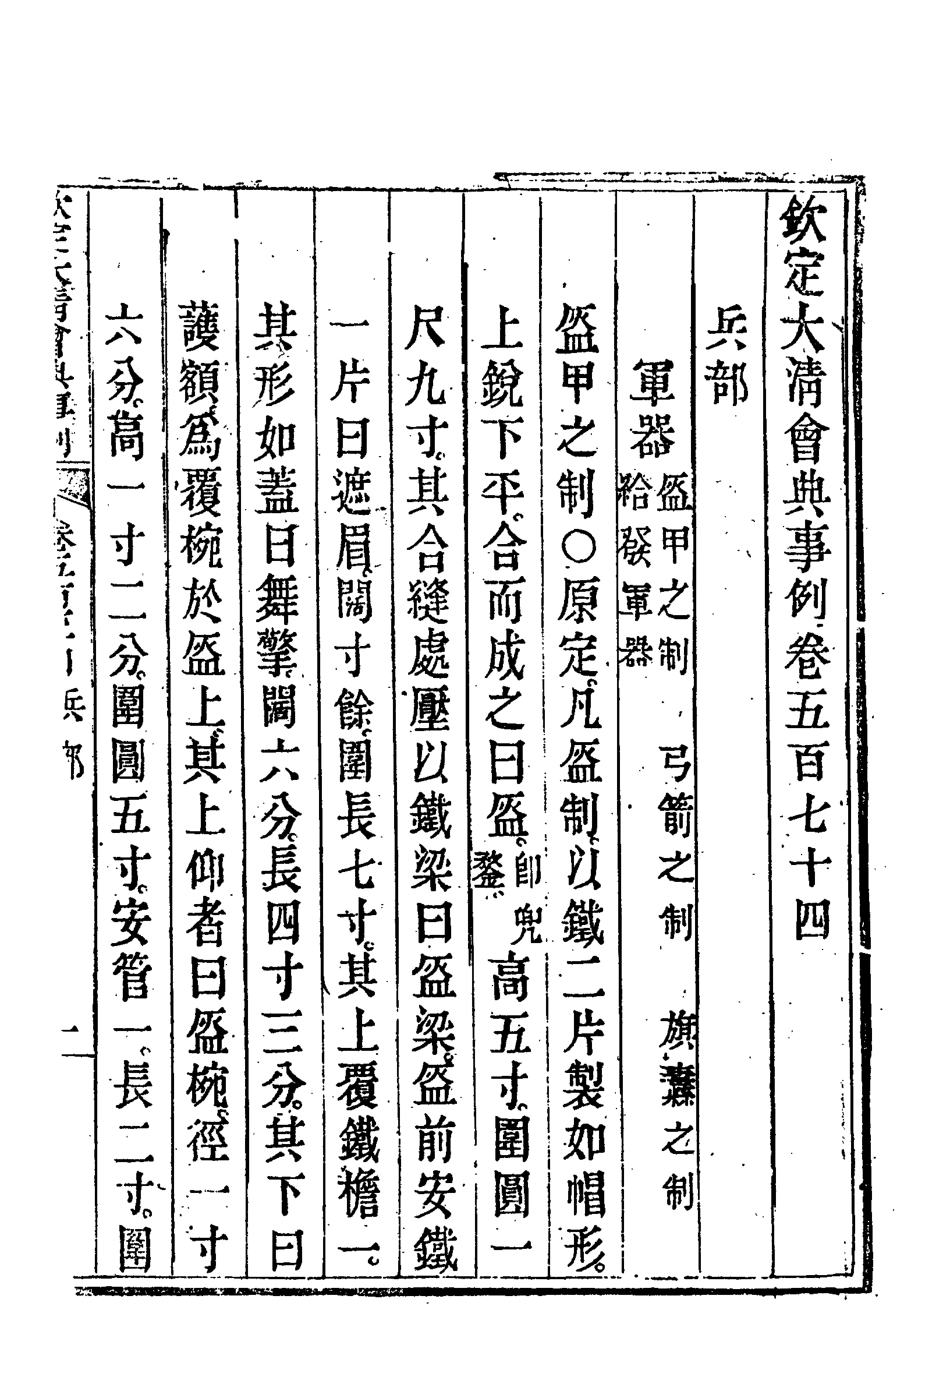 欽定大清會典事例卷五百七十四
兵部
軍器 盔甲之制 弓箭之制 旗纛之制
給發軍器
盔甲之制〇原定。凡盔制。以鐵二片製如帽形。
上銳下平。合而成之曰盔。卽兜鍪。高五寸。圍圓一
尺九寸。其合縫處壓以鐵梁曰盔梁。盔前安鐵
一片曰遮眉。闊寸餘。圍長七寸。其上覆鐵檐一。
其形如蓋曰舞擎。闊六分。長四寸三分。其下曰
護額。爲覆椀於盔上。其上仰者曰盔椀。徑一寸
六分。高一寸二分。圍圓五寸。安管一。長二寸。圍
兵部